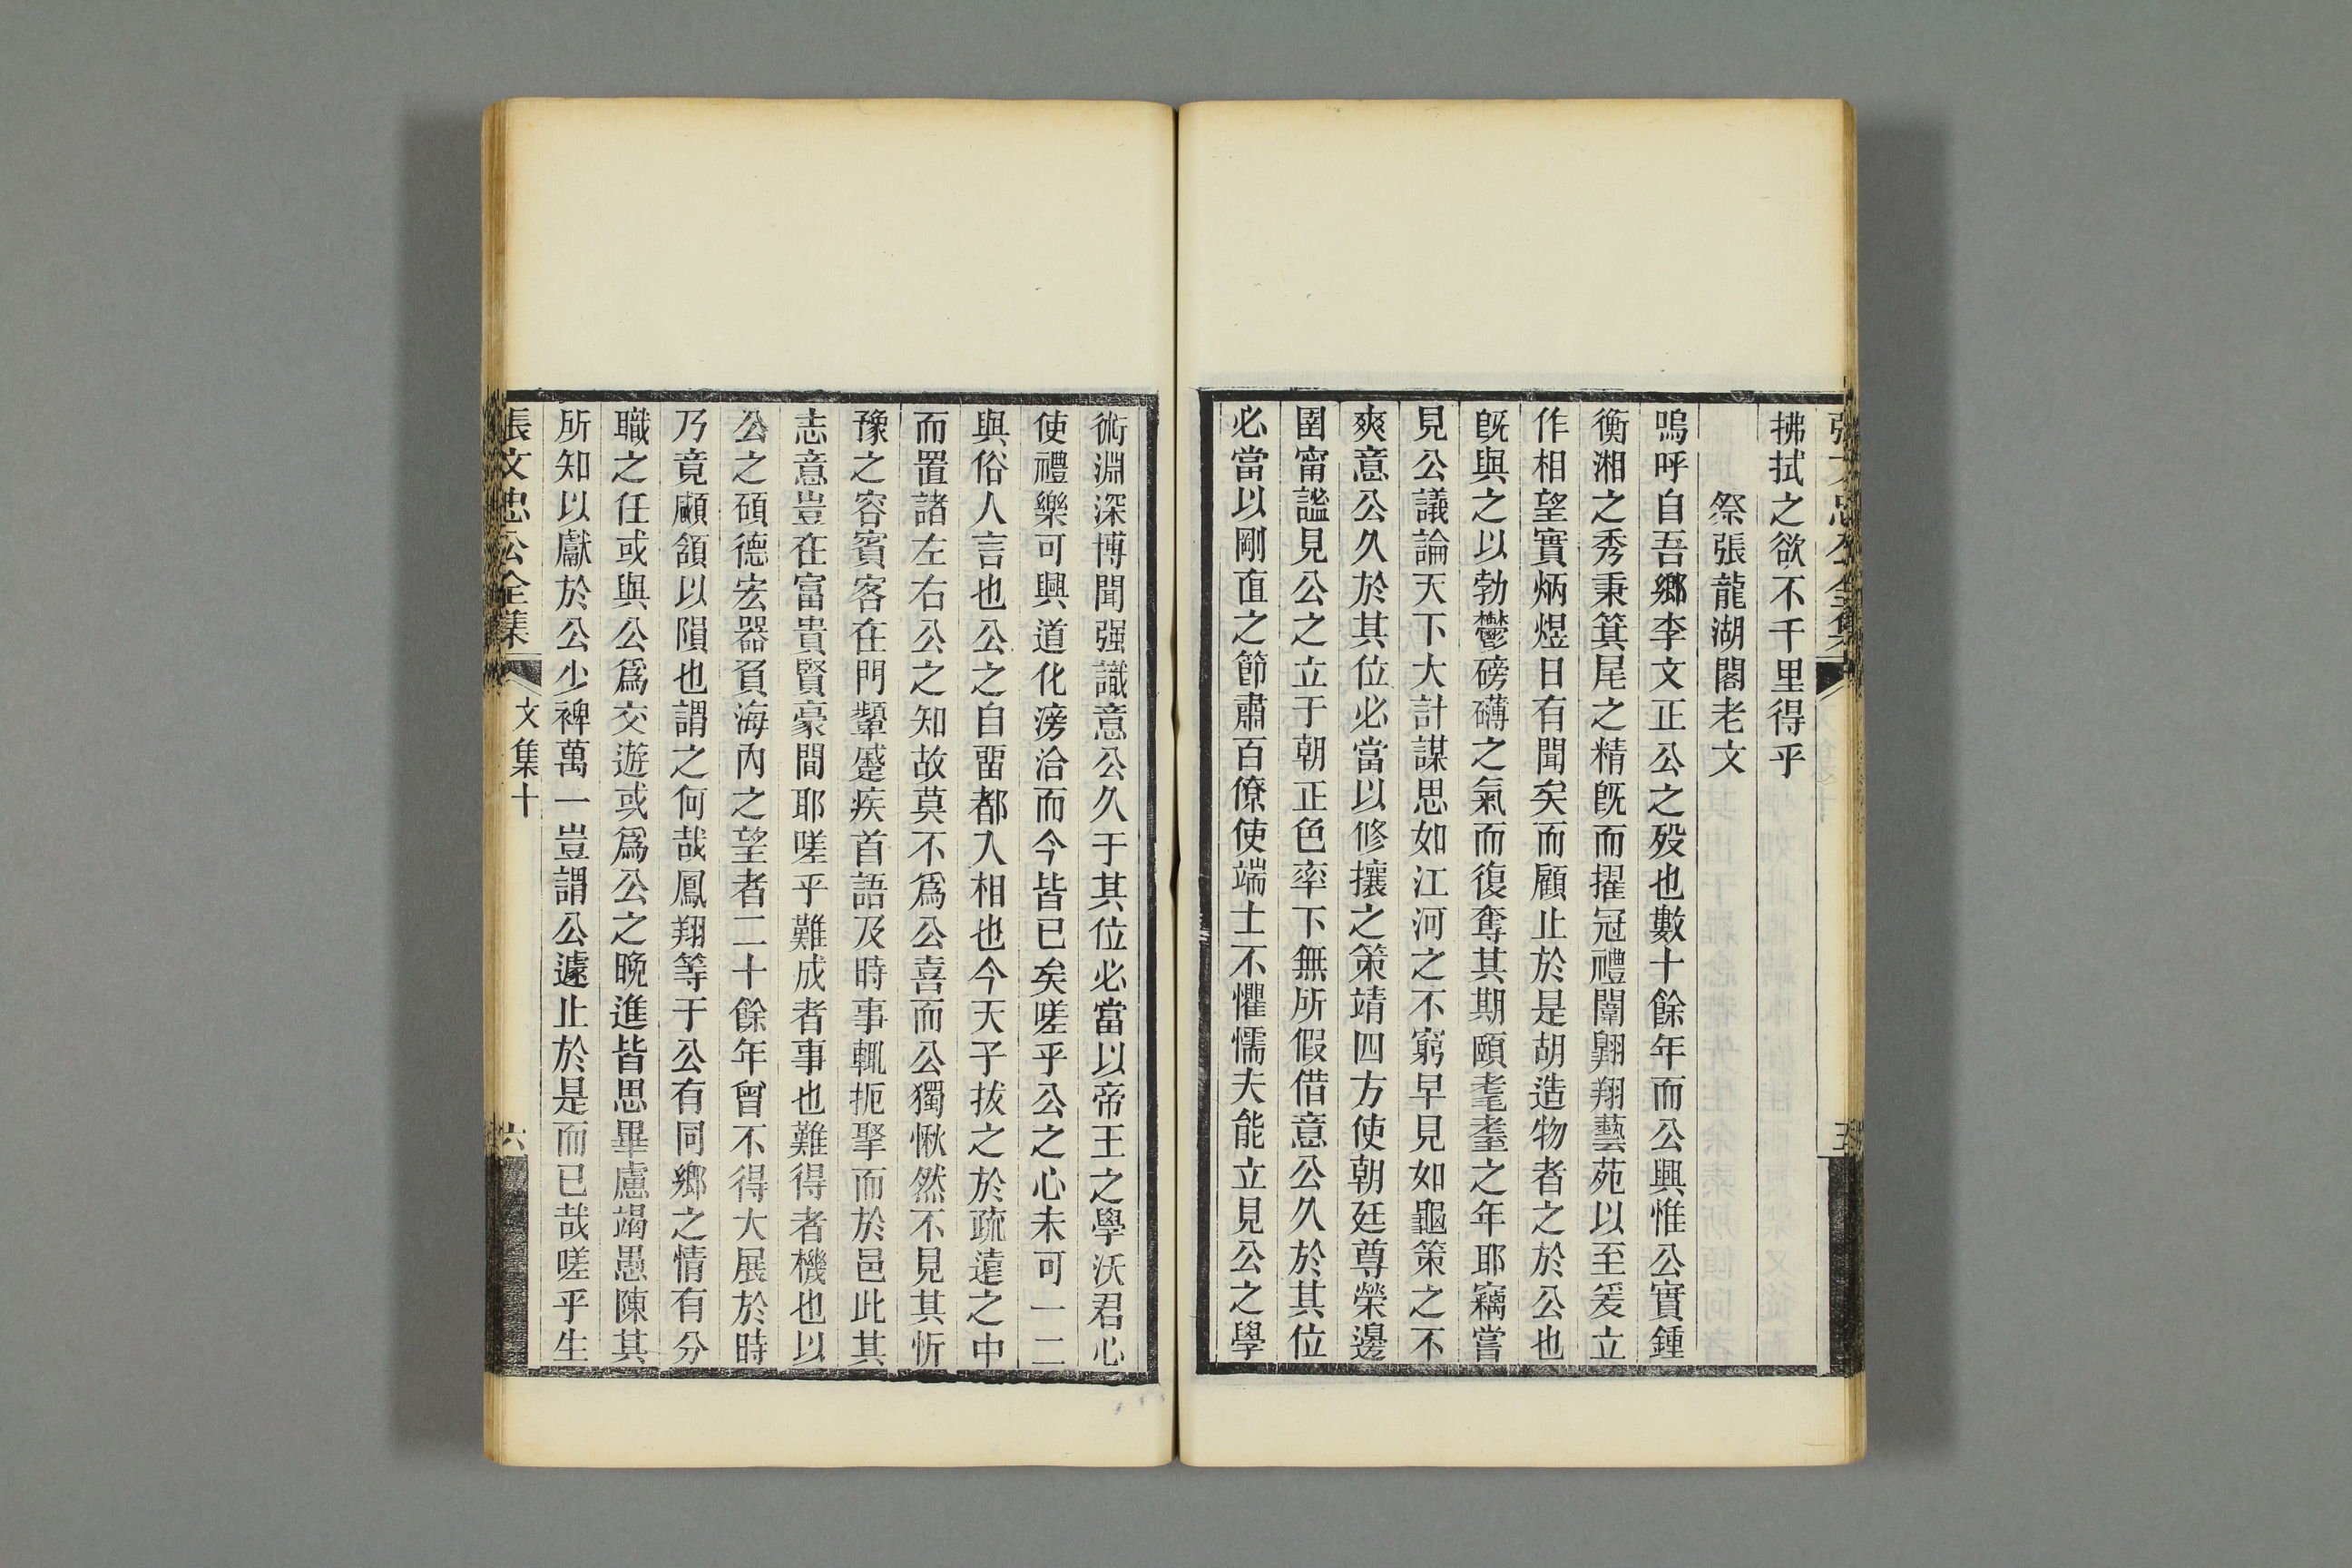 張文忠公全集 五
拂拭之欲不千里得乎
祭張龍湖閣老文
嗚呼自吾鄉李文正公之殁也數十餘年而公興惟公實鍾
衡湘之秀秉箕尾之精旣而擢冠禮闈翺翔藝苑以至爰立
作相望實炳煜日有聞矣而顧止於是胡造物者之於公也
旣與之以勃鬱磅礴之氣而復奪其期頤耄耋之年耶竊嘗
見公議論天下大計謀思如江河之不窮早見如龜策之不
爽意公久於其位必當以修攘之策靖四方使朝廷尊榮邊
圉甯謐見公之立于朝正色率下無所假借意公久於其位
必當以剛直之節肅百僚使端士不懼懦夫能立見公之學
術淵深博聞强識意公久于其位必當以帝王之學沃君心
使禮樂可興道化滂洽而今皆已矣嗟乎公之心未可一二
與俗人言也公之自畱都入相也今天子拔之於疏遠之中
而置諸左右公之知故莫不爲公喜而公獨愀然不見其忻
豫之容賓客在門顰蹙疾首語及時事輒扼掔而於邑此其
志意豈在富貴賢豪間耶嗟乎難成者事也難得者機也以
公之碩德宏器負海內之望者二十餘年曾不得大展於時
乃竟顑頷以隕也謂之何哉鳳翔等于公有同鄉之情有分
職之任或與公爲交遊或爲公之晚進皆思畢慮竭愚陳其
所知以獻於公少裨萬一豈謂公遽止於是而已哉嗟乎生
張文忠公全集 文集十 六